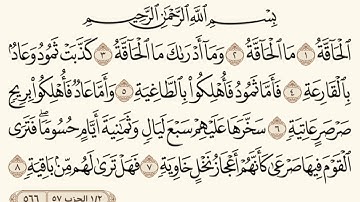 بِسْمِ ٱللَّهِ ٱلرَّحْمَٰنِ ٱلرَّحِيمِ
ٱلْحَآقَّةُ ١ مَا ٱلْحَآقَّةُ ٢ وَمَآ أَدْرَىٰكَ مَا ٱلْحَآقَّةُ ٣ كَذَّبَتْ ثَمُودُ وَعَادٌۢ
بِٱلْقَارِعَةِ ٤ فَأَمَّا ثَمُودُ فَأُهْلِكُوا۟ بِٱلطَّاغِيَةِ ٥ وَأَمَّا عَادٌ فَأُهْلِكُوا۟ بِرِيحٍ
صَرْصَرٍ عَاتِيَةٍ ٦ سَخَّرَهَا عَلَيْهِمْ سَبْعَ لَيَالٍ وَثَمَٰنِيَةَ أَيَّامٍ حُسُومًا ۖ فَتَرَى
ٱلْقَوْمَ فِيهَا صَرْعَىٰ كَأَنَّهُمْ أَعْجَازُ نَخْلٍ خَاوِيَةٍ ٧ فَهَلْ تَرَىٰ لَهُم مِّنۢ بَاقِيَةٍ ٨
١/٢ الحزب ٥٧ ٥٦٦